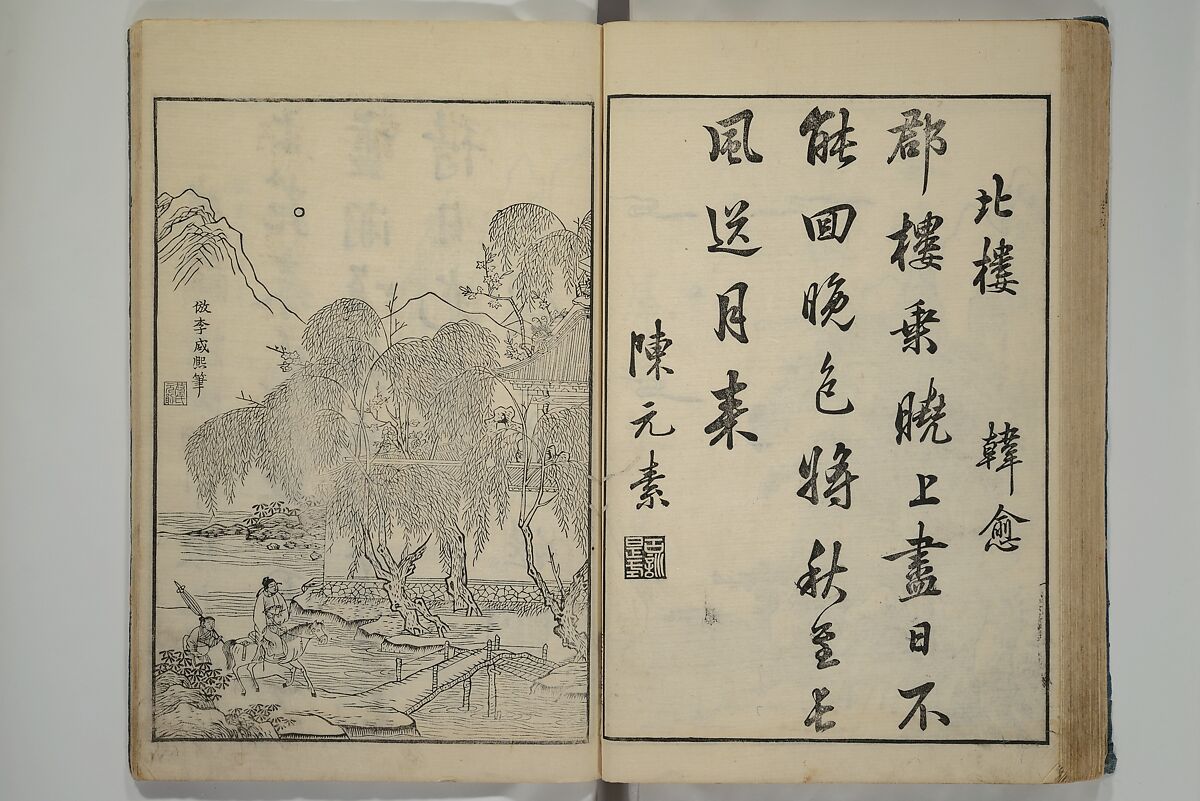 北樓 韓愈
郡樓乗曉上盡日不
能回晚色將秋至長
風送月来
陳元素
倣李咸熙筆